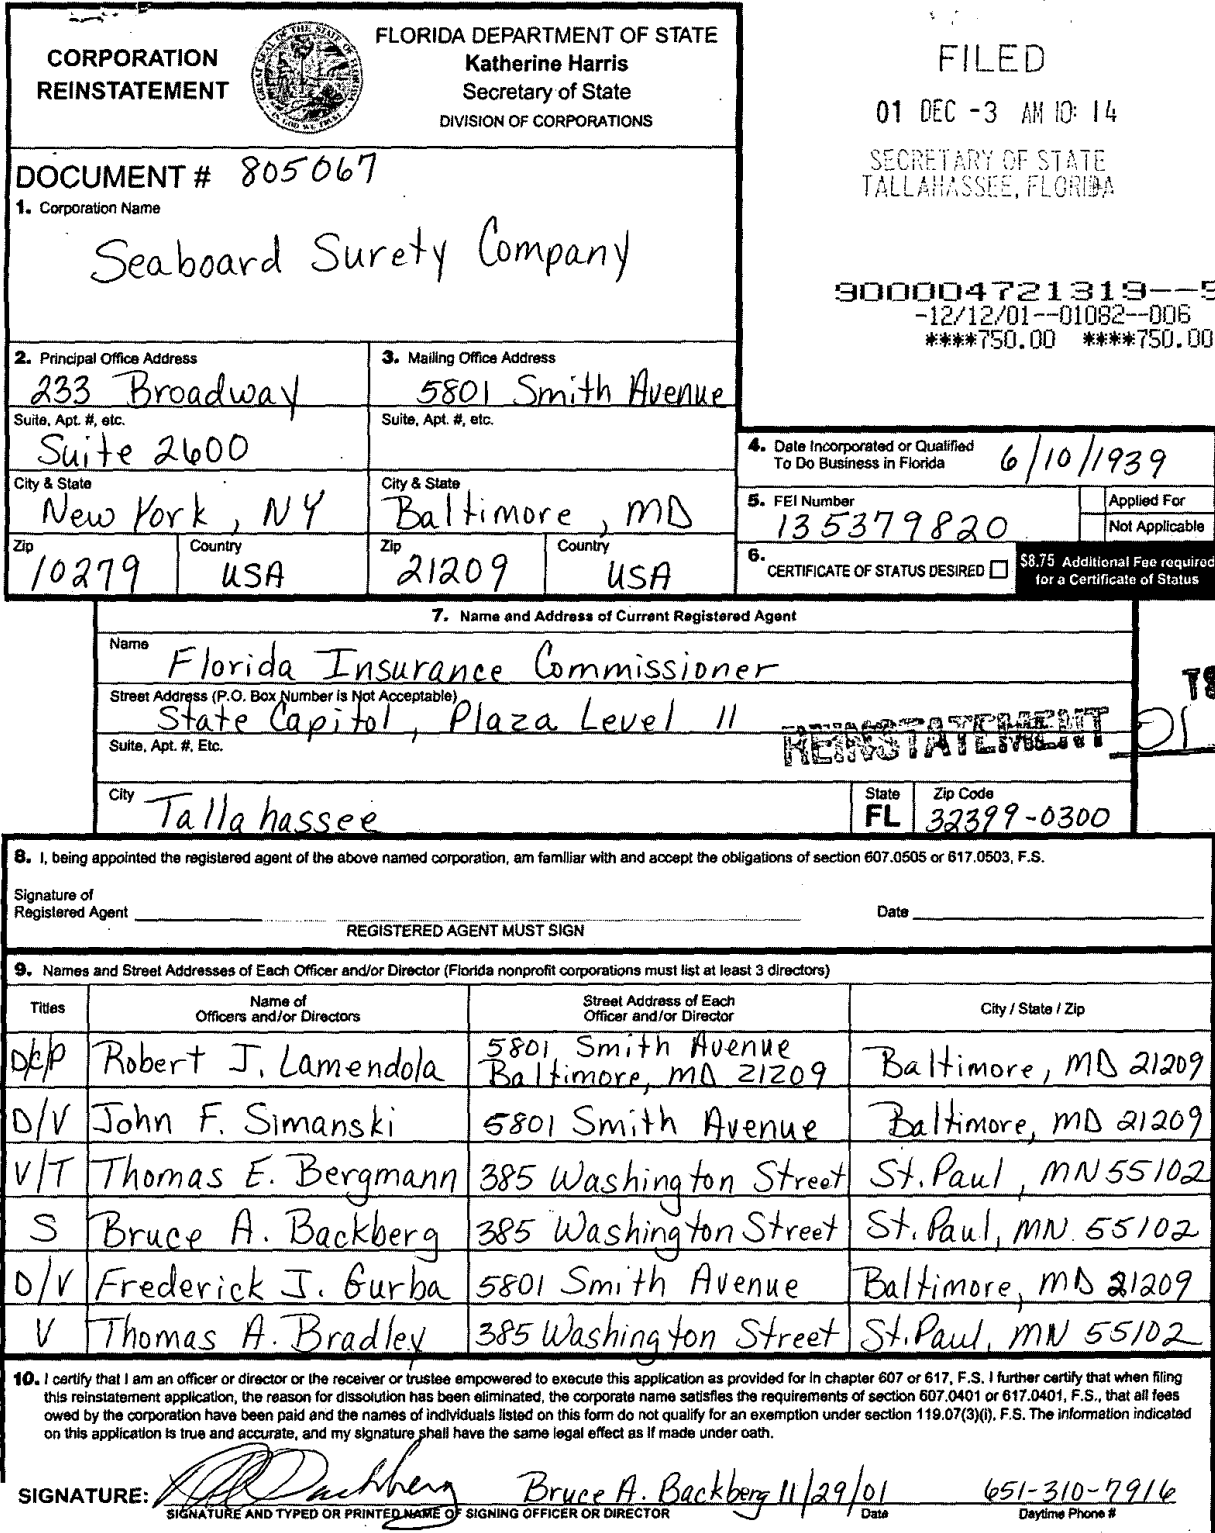 CORPORATION
REINSTATEMENT
FLORIDA DEPARTMENT OF STATE
Katherine Harris
Secretary of State
DIVISION OF CORPORATIONS
FILED
01 DEC -3 AM 10: 14
SECRETARY OF STATE
TALLAHASSEE, FLORIDA
DOCUMENT # 805067
1. Corporation Name
Seaboard Surety Company
900004721319--9
-12/12/01--01082--006
****750.00 ****750.00
2. Principal Office Address
233 Broadway
3. Mailing Office Address
5801 Smith Avenue
Suite, Apt. #, etc.
Suite 2600
Suite, Apt. #, etc.
City & State
New York, NY
City & State
Baltimore, MD
Zip
10279
Country
USA
Zip
21209
Country
USA
4. Date Incorporated or Qualified
To Do Business in Florida 6/10/1939
5. FEI Number
135379820
Applied For
Not Applicable
6. CERTIFICATE OF STATUS DESIRED
$8.75 Additional Fee required
for a Certificate of Status
7. Name and Address of Current Registered Agent
Name
Florida Insurance Commissioner
Street Address (P.O. Box Number is Not Acceptable)
State Capitol, Plaza Level 11
Suite, Apt. #, Etc.
REINSTATEMENT 01
TS
City
Tallahassee
State
FL
Zip Code
32399-0300
8. I, being appointed the registered agent of the above named corporation, am familiar with and accept the obligations of section 607.0505 or 617.0503, F.S.
Signature of
Registered Agent
Date
REGISTERED AGENT MUST SIGN
9. Names and Street Addresses of Each Officer and/or Director (Florida nonprofit corporations must list at least 3 directors)
Titles
Name of
Officers and/or Directors
Street Address of Each
Officer and/or Director
City / State / Zip
D/C/P Robert J. Lamendola 5801 Smith Avenue
Baltimore, MD 21209 Baltimore, MD 21209
D/V John F. Simanski 5801 Smith Avenue Baltimore, MD 21209
V/T Thomas E. Bergmann 385 Washington Street St. Paul, MN 55102
S Bruce A. Backberg 385 Washington Street St. Paul, MN 55102
D/V Frederick J. Gurba 5801 Smith Avenue Baltimore, MD 21209
V Thomas A. Bradley 385 Washington Street St. Paul, MN 55102
10. I certify that I am an officer or director or the receiver or trustee empowered to execute this application as provided for in chapter 607 or 617, F.S. I further certify that when filing
this reinstatement application, the reason for dissolution has been eliminated, the corporate name satisfies the requirements of section 607.0401 or 617.0401, F.S., that all fees
owed by the corporation have been paid and the names of individuals listed on this form do not qualify for an exemption under section 119.07(3)(i), F.S. The information indicated
on this application is true and accurate, and my signature shall have the same legal effect as if made under oath.
SIGNATURE: Backberg Bruce A. Backberg 11/29/01 651-310-7916
SIGNATURE AND TYPED OR PRINTED NAME OF SIGNING OFFICER OR DIRECTOR Date Daytime Phone #